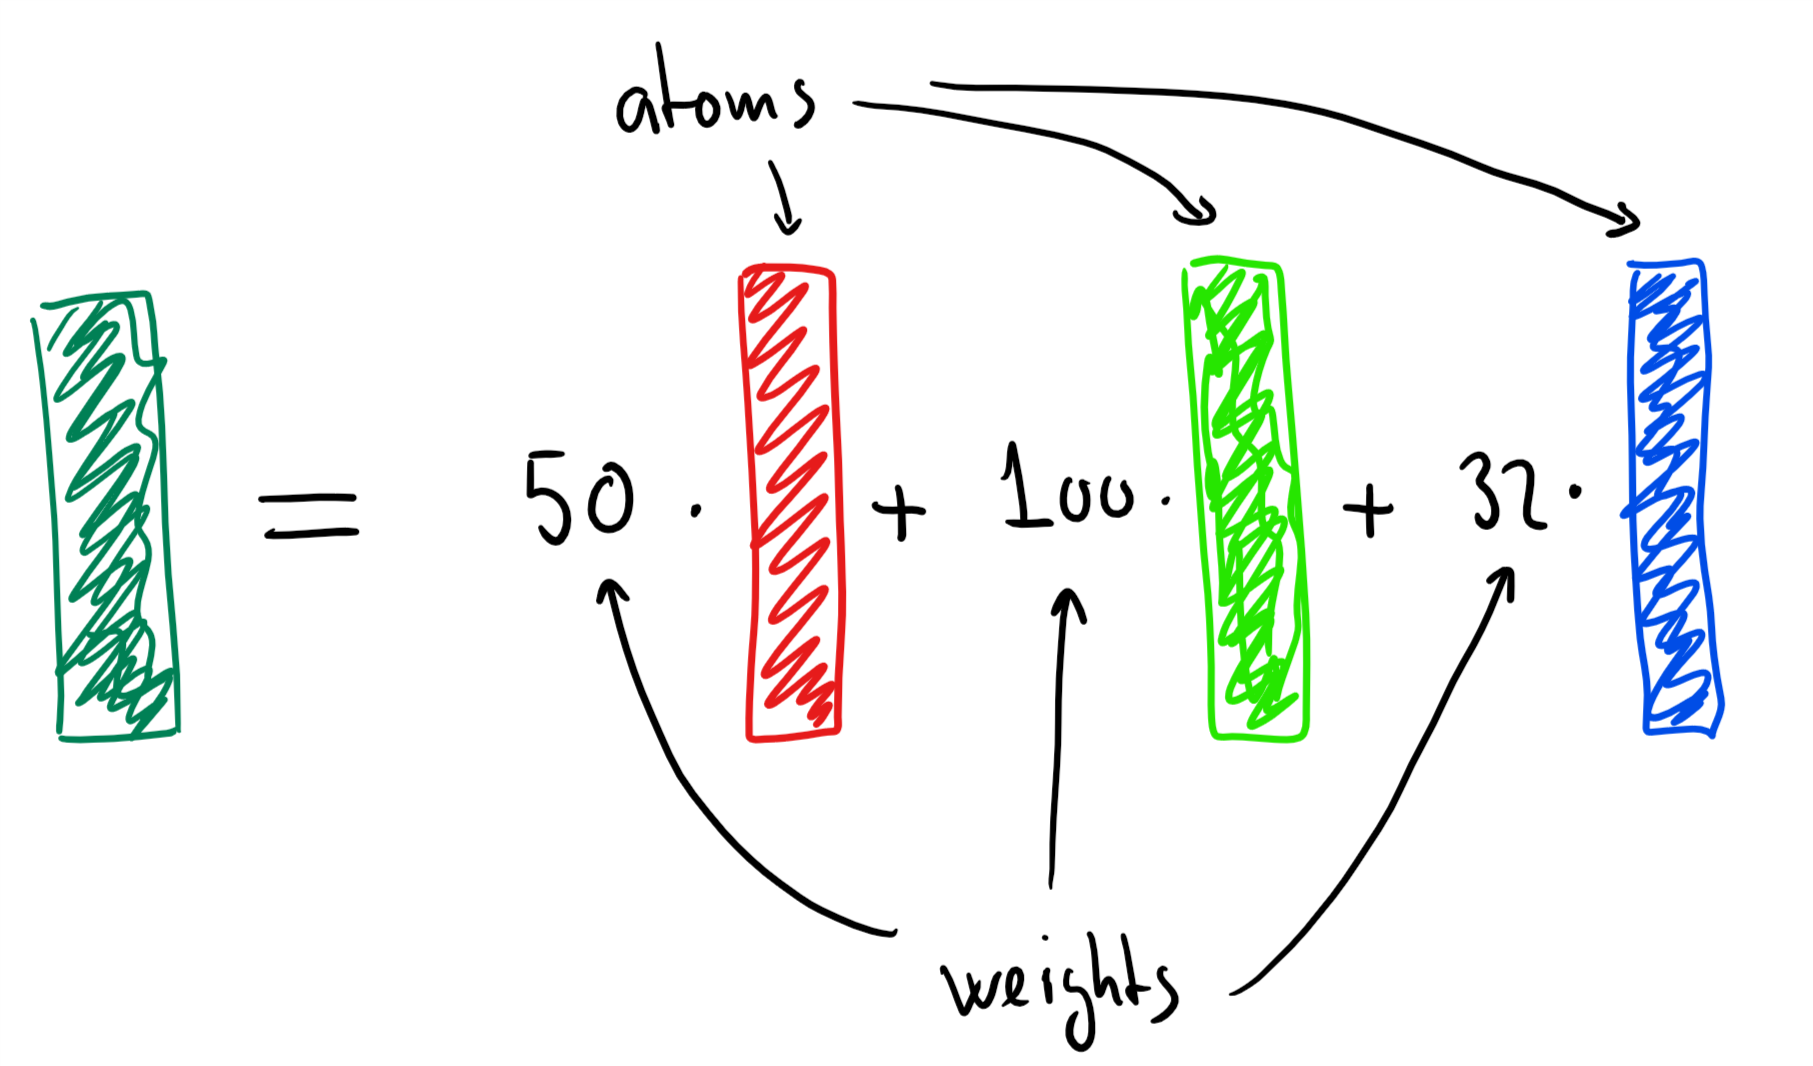 atoms
= 50 · + 100 · + 32 ·
weights